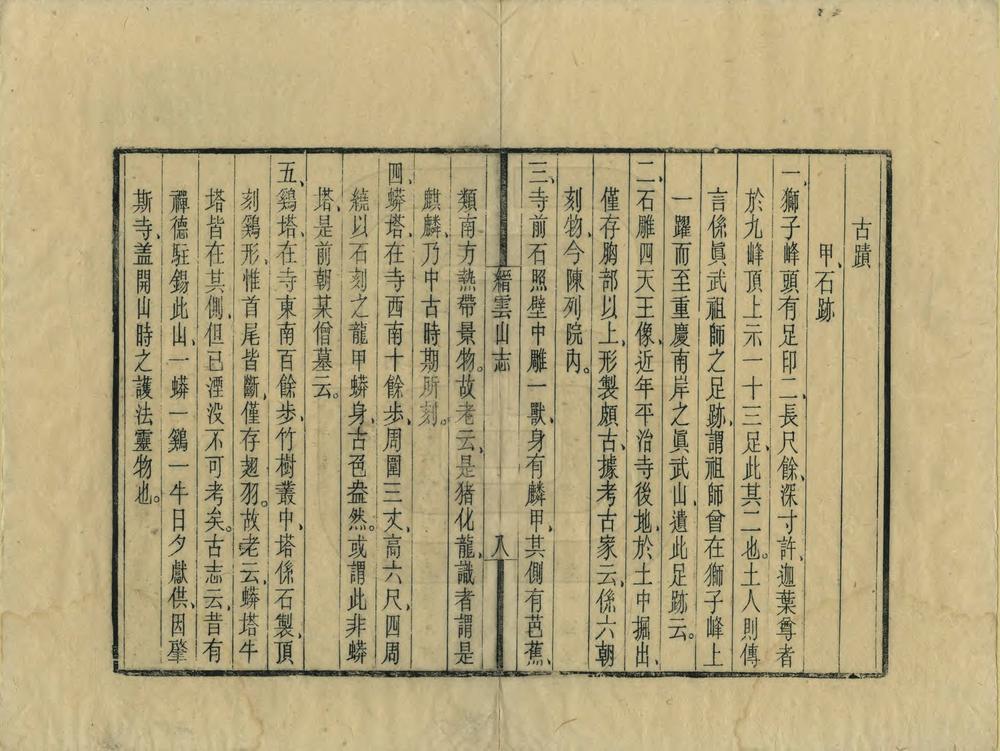 古蹟
甲、石跡
一、獅子峰頭有足印二、長尺餘、深寸許、迦葉尊者
於九峰頂上示一十三足、此其二也。土人則傳
言係眞武祖師之足跡、謂祖師曾在獅子峰上
一躍而至重慶南岸之眞武山、遺此足跡云。
二、石雕四天王像、近年平治寺後地、於土中掘出、
僅存胸部以上、形製頗古、據考古家云、係六朝
刻物、今陳列院內。
三、寺前石照壁中雕一獸、身有麟甲、其側有芭蕉、
縉雲山志
八
類南方熱帶景物。故老云、是猪化龍、識者謂是
麒麟、乃中古時期所刻。
四、蟒塔、在寺西南十餘步、周圍三丈、高六尺、四周
繞以石刻之龍甲蟒身、古色盎然。或謂此非蟒
塔、是前朝某僧墓云。
五、鷄塔、在寺東南百餘步、竹樹叢中、塔係石製、頂
刻鷄形、惟首尾皆斷、僅存翅羽。故老云、蟒塔牛
塔皆在其側、但已湮没不可考矣。古志云、昔有
禪德駐錫此山、一蟒一鷄一牛日夕獻供、因肇
斯寺、盖開山時之護法靈物也。